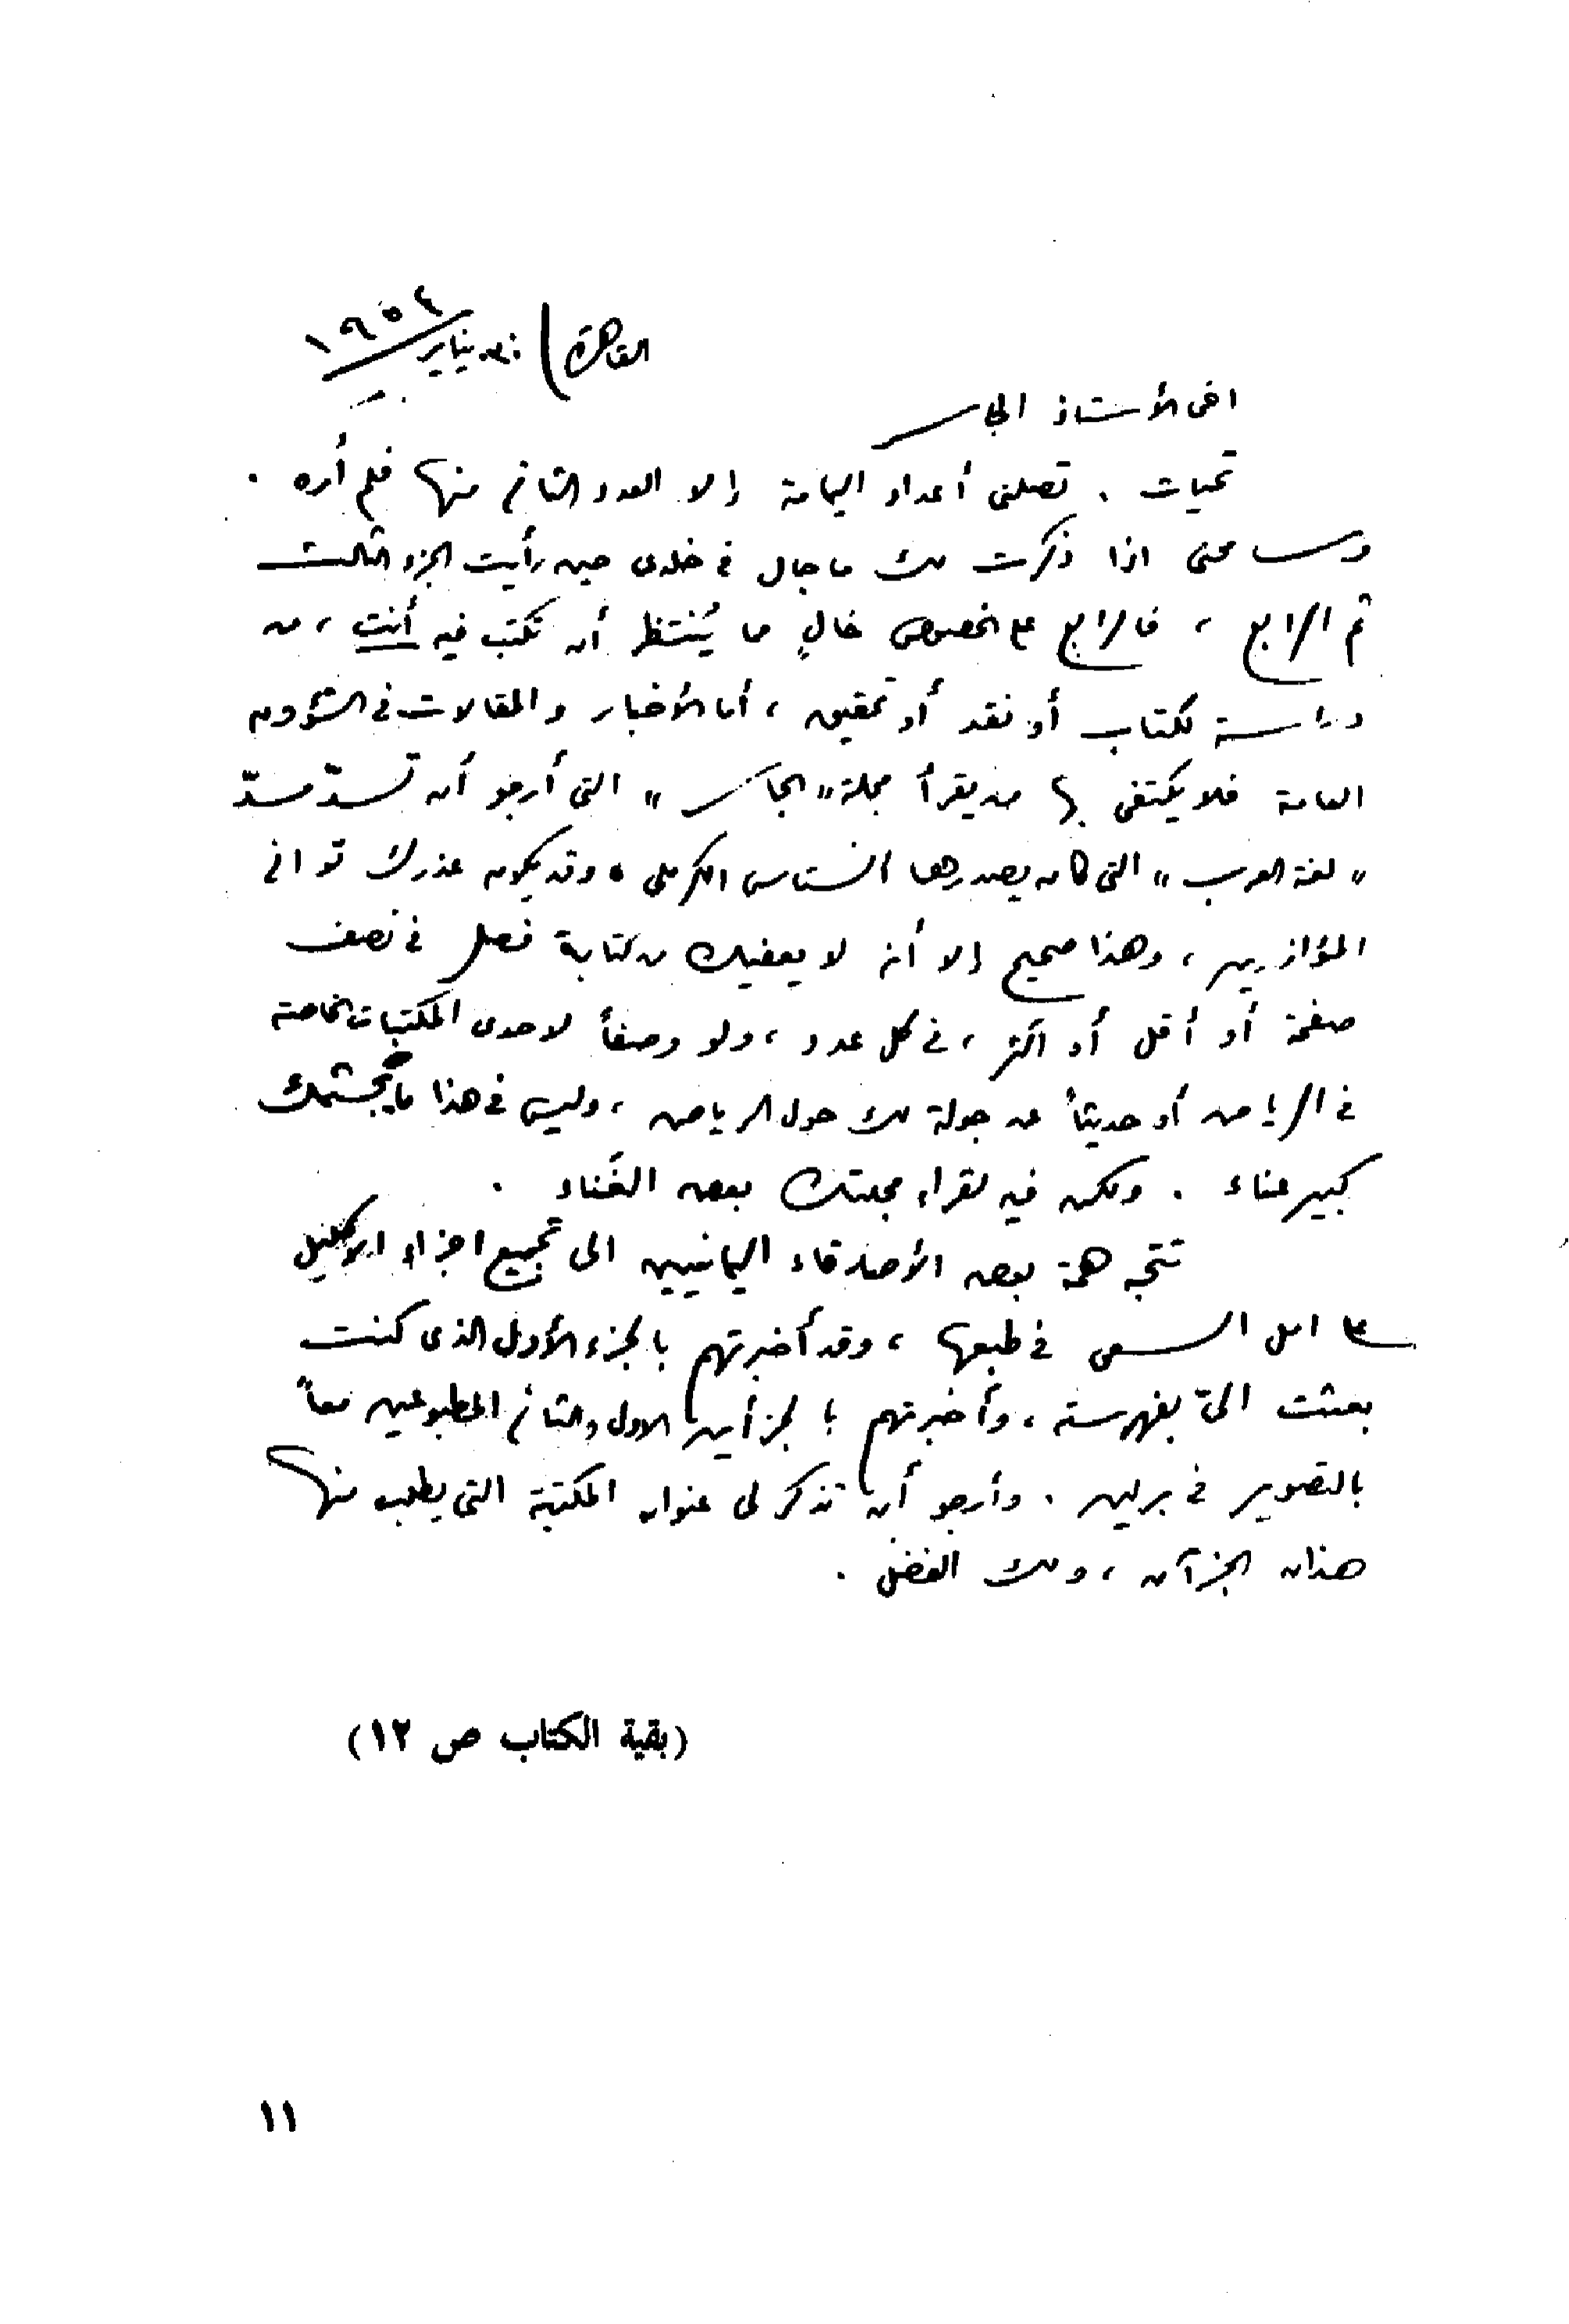 القاهرة / ٣٠ يناير ١٩٥٤
اخي الأستاذ الجاسر
تحيات . تصلني أعداد اليمامة إلا العدد الثاني منها فلم أره .
وسامحني اذا ذكرت لك ما جال في خلدي حين رأيت الجزء الثالث
ثم الرابع ، فالرابع على الخصوص خالٍ مما يُنتظر أن تكتب فيه أنت ، من
دراسة لكتاب أو نقد أو تحقيق ، أما الأخبار والمقالات في الشؤون
العامة فلا يكتفي بها من يقرأ مجلة "الجاسر" التي أرجو أن تسدّ مسدّ
"لغة العرب" التي كان يصدرها انستاس الكرملي . وقد يكون عذرك تواني
المؤازرين ، وهذا صحيح إلا أنه لا يعفيك من كتابة فصل في نصف
صفحة أو أقل أو اكثر ، في كل عدد ، ولو وصفاً لاحدى المكتبات الخاصة
في الرياض أو حديثاً عن جولة لك حول الرياض ، وليس في هذا ما يجشمك
كبير عناء . ولكن فيه لقراء مجلتك بعض الغَناء .
تتجه همة بعض الأصدقاء اليمانيين الى تجميع اجزاء الاكليل
على امل السعي في طبعها ، وقد أخبرتهم بالجزء الأول الذي كنت
بعثت اليّ بفهرسته ، وأخبرتهم بالجزأين الاول والثاني المطبوعين معاً
بالتصوير في برلين . وأرجو أن تذكر لي عنوان المكتبة التي يطلب منها
هذان الجزآن ، ولك الفضل .
(بقية الكتاب ص ١٢)
١١